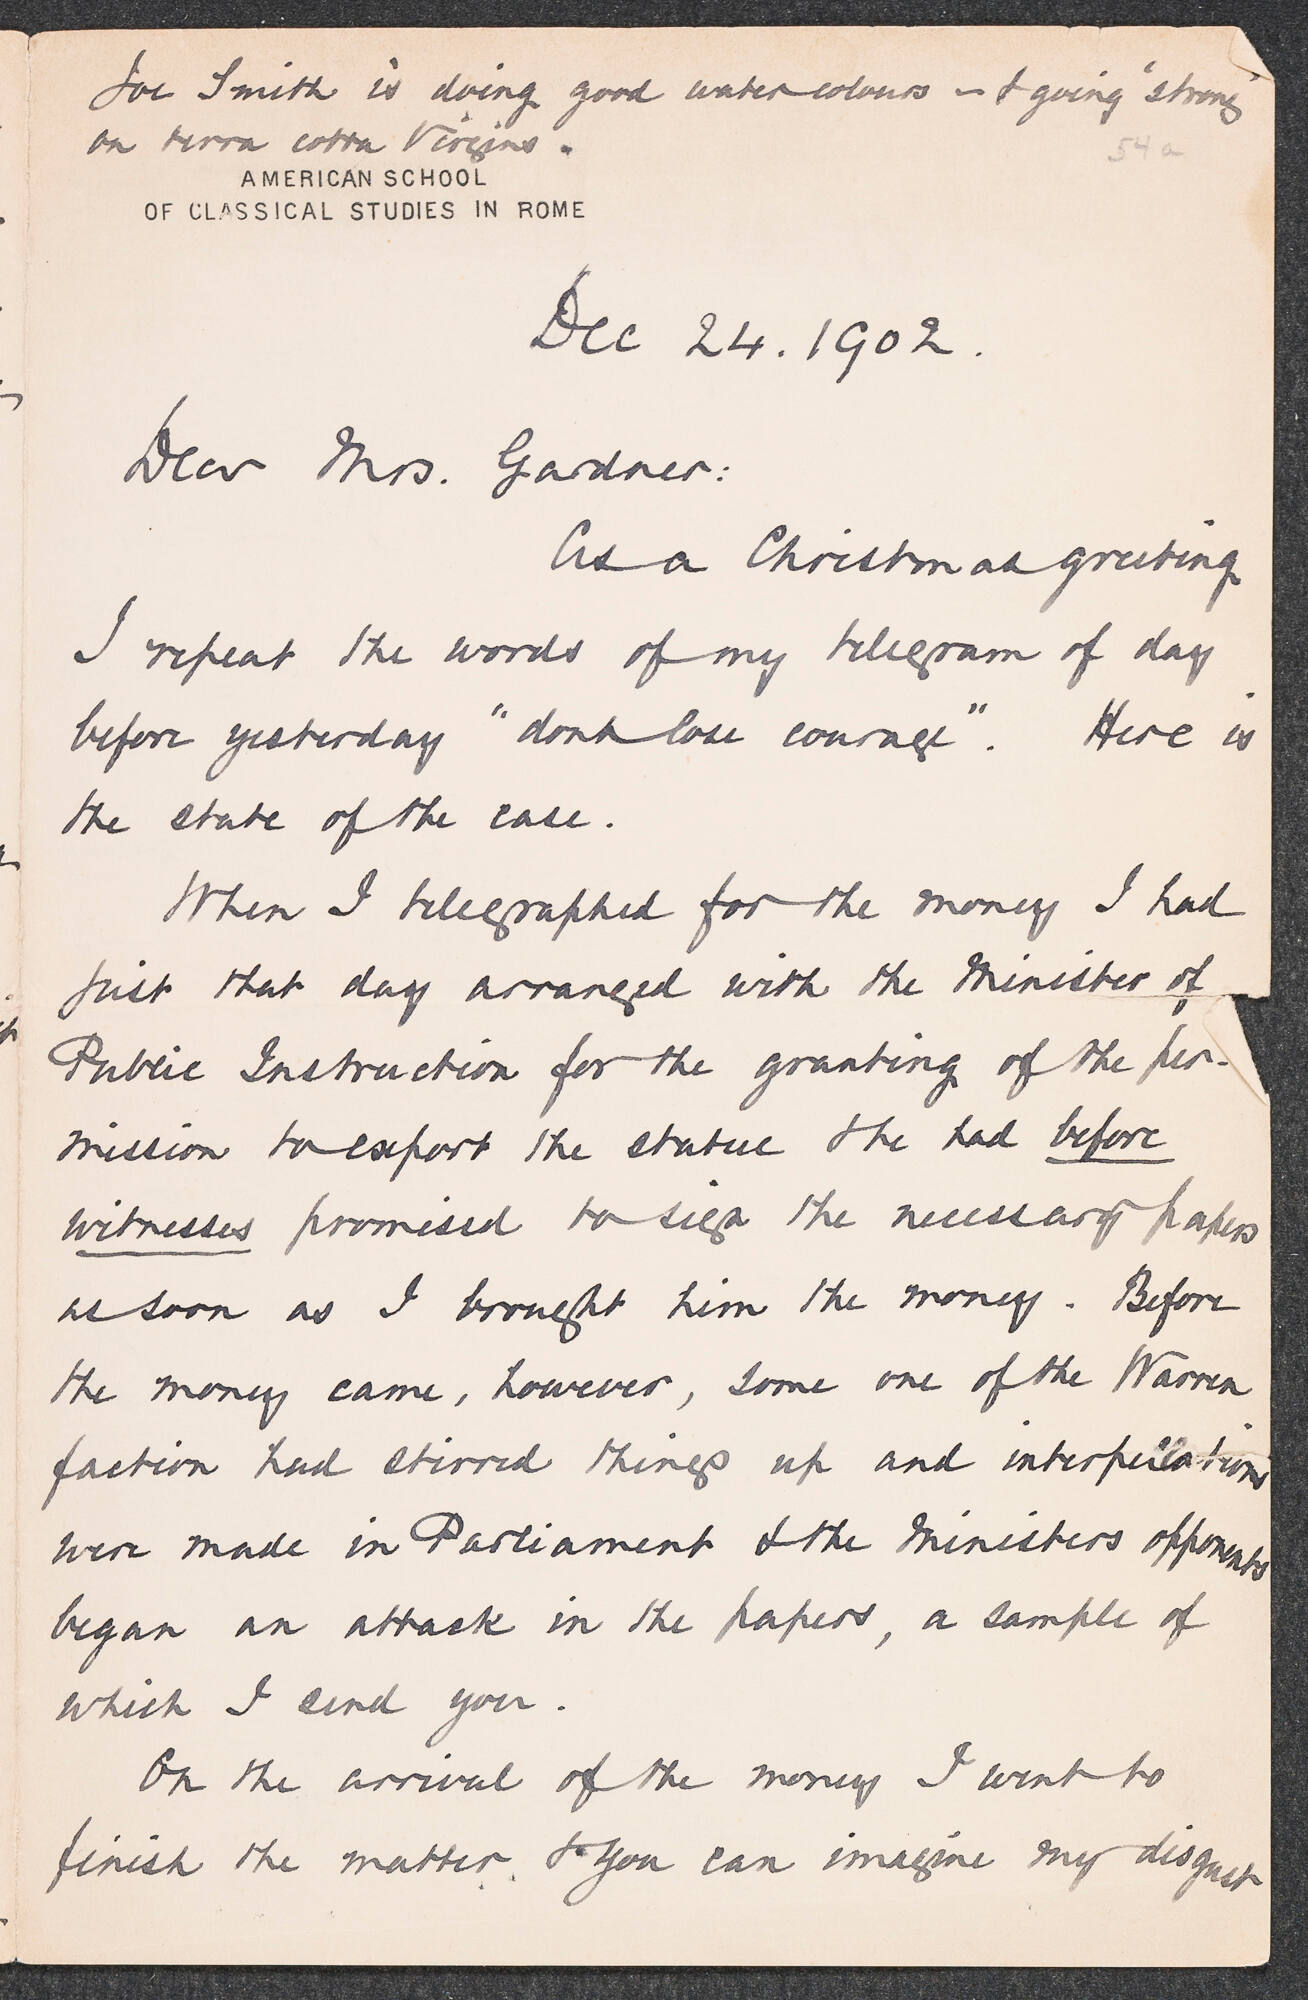 Joe Smith is doing good watercolours – & going "strong"
on terra cotta Virgins.
54a
AMERICAN SCHOOL
OF CLASSICAL STUDIES IN ROME
Dec 24. 1902.
Dear Mrs. Gardner:
As a Christmas greeting
I repeat the words of my telegram of day
before yesterday "dont lose courage". Here is
the state of the case.
When I telegraphed for the money I had
just that day arranged with the Minister of
Public Instruction for the granting of the per-
mission to export the statue & he had before
witnesses promised to sign the necessary papers
as soon as I brought him the money. Before
the money came, however, some one of the Warren
faction had stirred things up and interpellations
were made in Parliament & the Ministers opponents
began an attack in the papers, a sample of
which I send you.
On the arrival of the money I went to
finish the matter & you can imagine my disgust